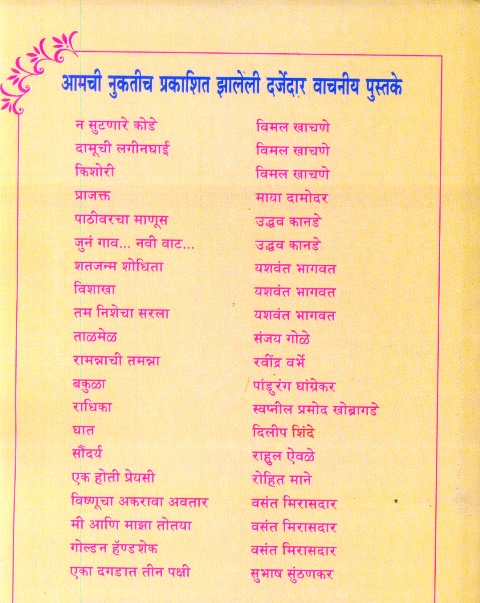 आमची नुकतीच प्रकाशित झालेली दर्जेदार वाचनीय पुस्तके
न सुटणारे कोडे विमल खाचणे
दामूची लगीनघाई विमल खाचणे
किशोरी विमल खाचणे
प्राजक्त माया दामोदर
पाठीवरचा माणूस उद्धव कानडे
जुनं गाव... नवी वाट... उद्धव कानडे
शतजन्म शोधिता यशवंत भागवत
विशाखा यशवंत भागवत
तम निशेचा सरला यशवंत भागवत
ताळमेळ संजय गोळे
रामन्नाची तमन्ना रवींद्र वर्भे
बकुळा पांडुरंग घांग्रेकर
राधिका स्वप्नील प्रमोद खोब्रागडे
घात दिलीप शिंदे
सौंदर्य राहुल ऐवळे
एक होती प्रेयसी रोहित माने
विष्णूचा अकरावा अवतार वसंत मिरासदार
मी आणि माझा तोतया वसंत मिरासदार
गोल्डन हॅण्डशेक वसंत मिरासदार
एका दगडात तीन पक्षी सुभाष सुंठणकर